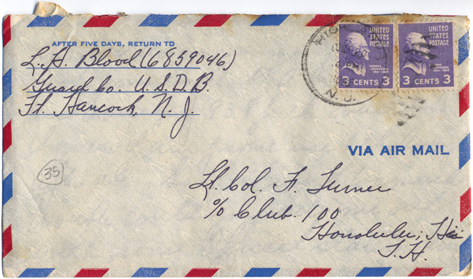 AFTER FIVE DAYS, RETURN TO
L. H. Blood (6859046)
Guard Co. U.S.D.B.
Ft. Hancock, N. J.
UNITED STATES POSTAGE
3 CENTS 3
UNITED STATES POSTAGE
3 CENTS 3
N. J.
VIA AIR MAIL
35
Lt. Col. F. Turner
℅ Club. 100
Honolulu,
T. H.